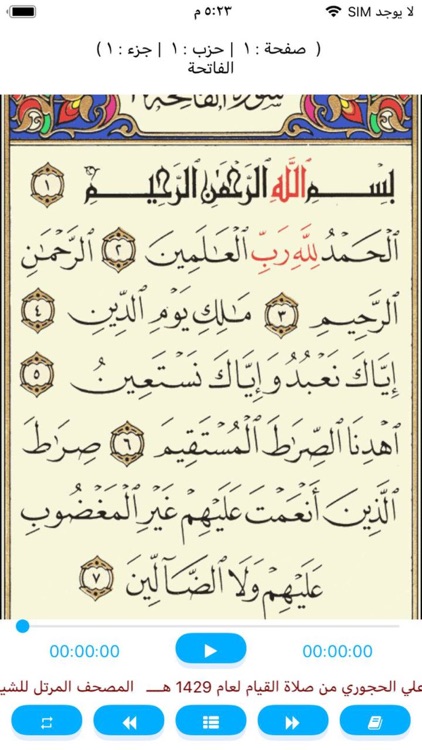 لا يوجد SIM
٥:٢٣ م
( صفحة : ١ | حزب : ١ | جزء : ١ )
الفاتحة
سورة الفاتحة
بِسْمِ ٱللَّهِ ٱلرَّحْمَٰنِ ٱلرَّحِيمِ ١
ٱلْحَمْدُ لِلَّهِ رَبِّ ٱلْعَٰلَمِينَ ٢ ٱلرَّحْمَٰنِ
ٱلرَّحِيمِ ٣ مَٰلِكِ يَوْمِ ٱلدِّينِ ٤
إِيَّاكَ نَعْبُدُ وَإِيَّاكَ نَسْتَعِينُ ٥
ٱهْدِنَا ٱلصِّرَٰطَ ٱلْمُسْتَقِيمَ ٦ صِرَٰطَ
ٱلَّذِينَ أَنْعَمْتَ عَلَيْهِمْ غَيْرِ ٱلْمَغْضُوبِ
عَلَيْهِمْ وَلَا ٱلضَّآلِّينَ ٧
00:00:00 00:00:00
علي الحجوري من صلاة القيام لعام 1429 هـــ المصحف المرتل للشي